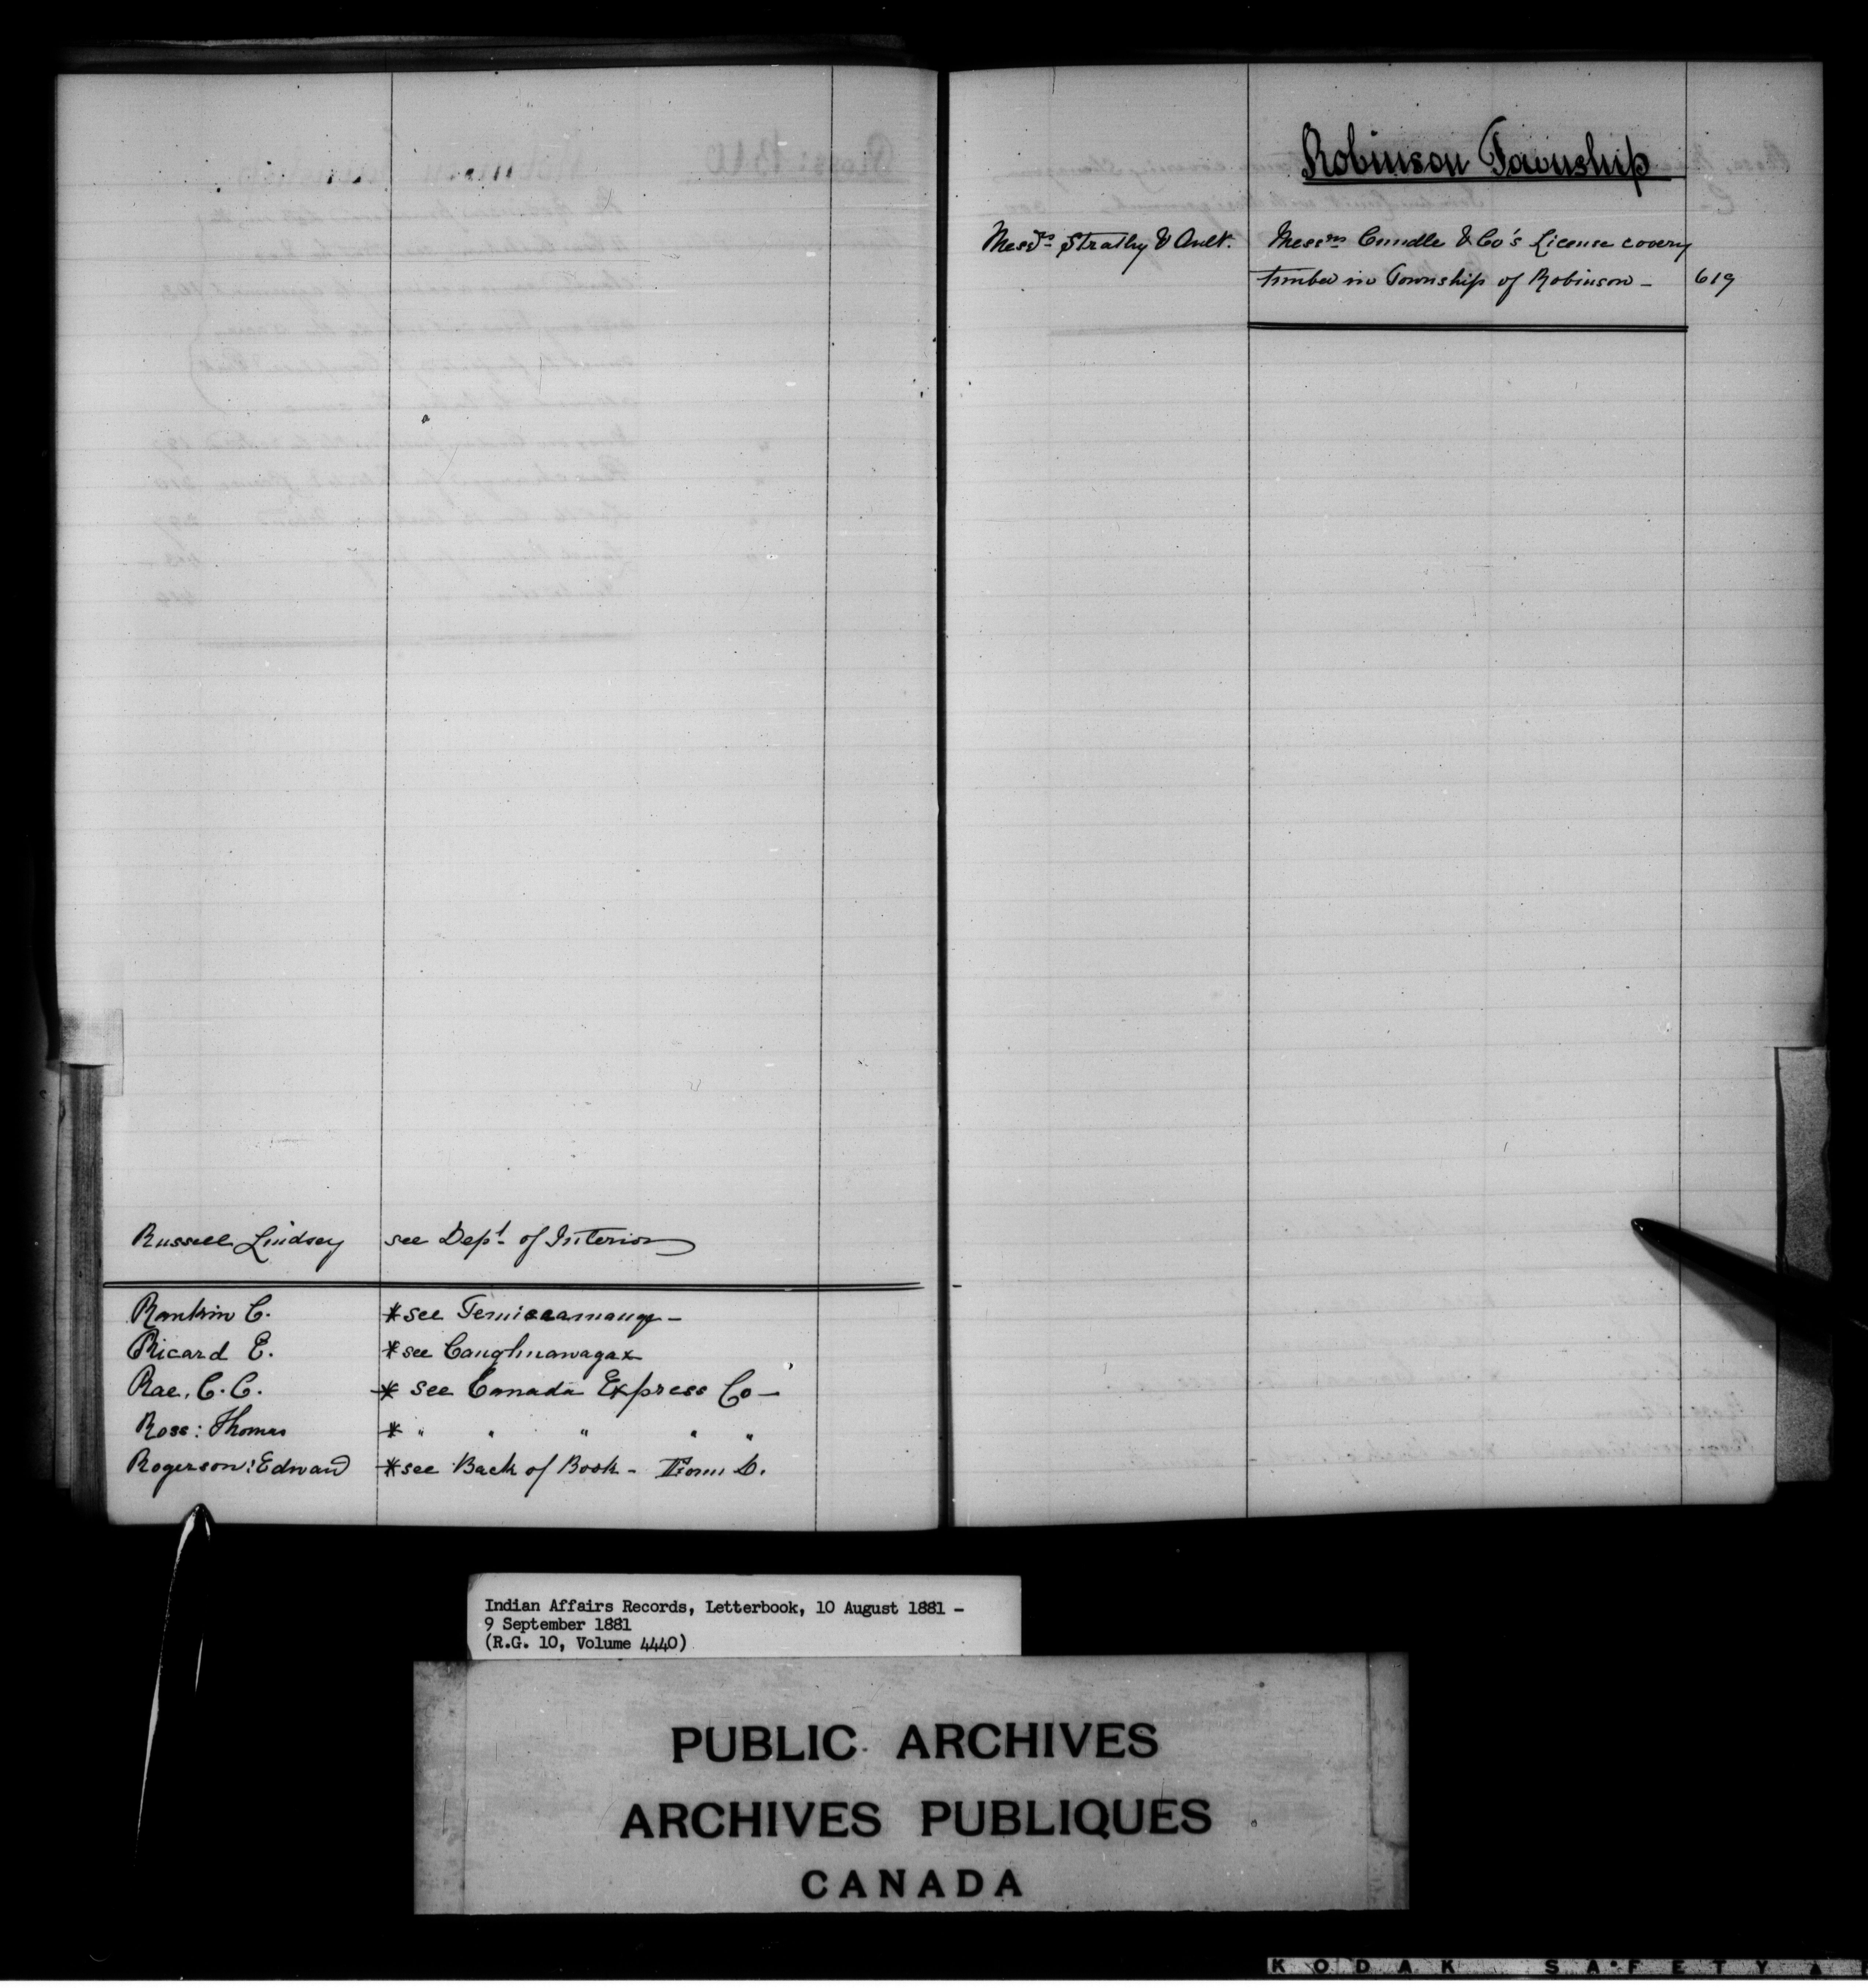 Russell Lindsey see Dept. of Interior
Rankin C. * see Temiscamangue -
Ricard E. * see Caughnawaga x
Rae, C. C. * see Canada Express Co -
Ross: Thomas * " " " " "
Rogerson: Edward * see Back of Book - From D.
Robinson Township
Messrs. Strathy & Ault. Messrs Cundle & Co's License covery
timber in Township of Robinson - 619
Indian Affairs Records, Letterbook, 10 August 1881 -
9 September 1881
(R.G. 10, Volume 4440)
PUBLIC ARCHIVES
ARCHIVES PUBLIQUES
CANADA
KODAK SAFETY